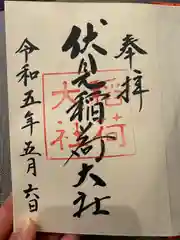 奉拝
伏見稲荷大社
令和五年五月六日
稲荷
大社